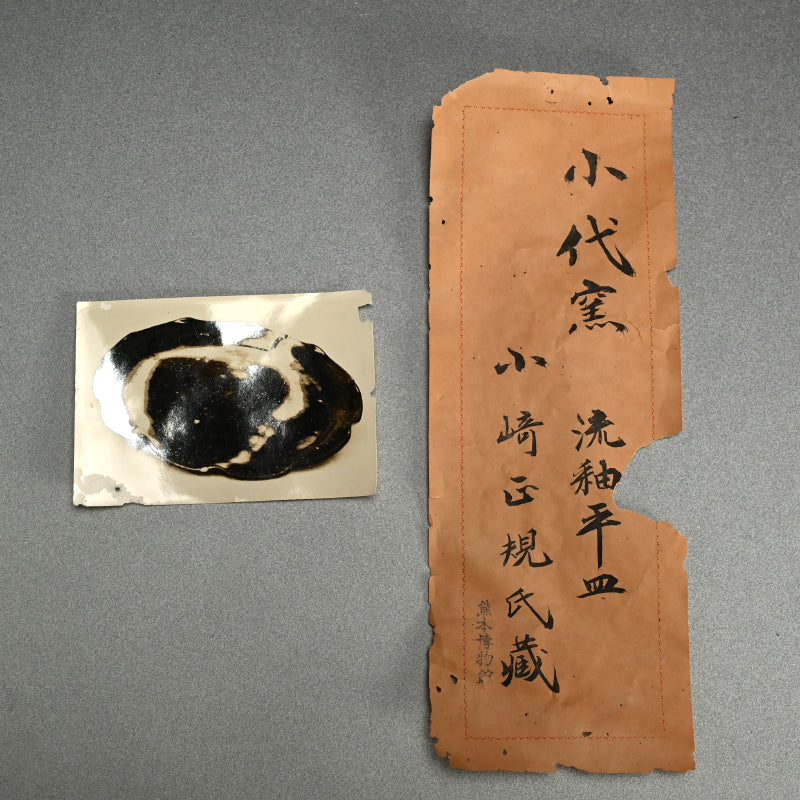 小代窯　流釉平皿
小崎正規氏藏
熊本博物館